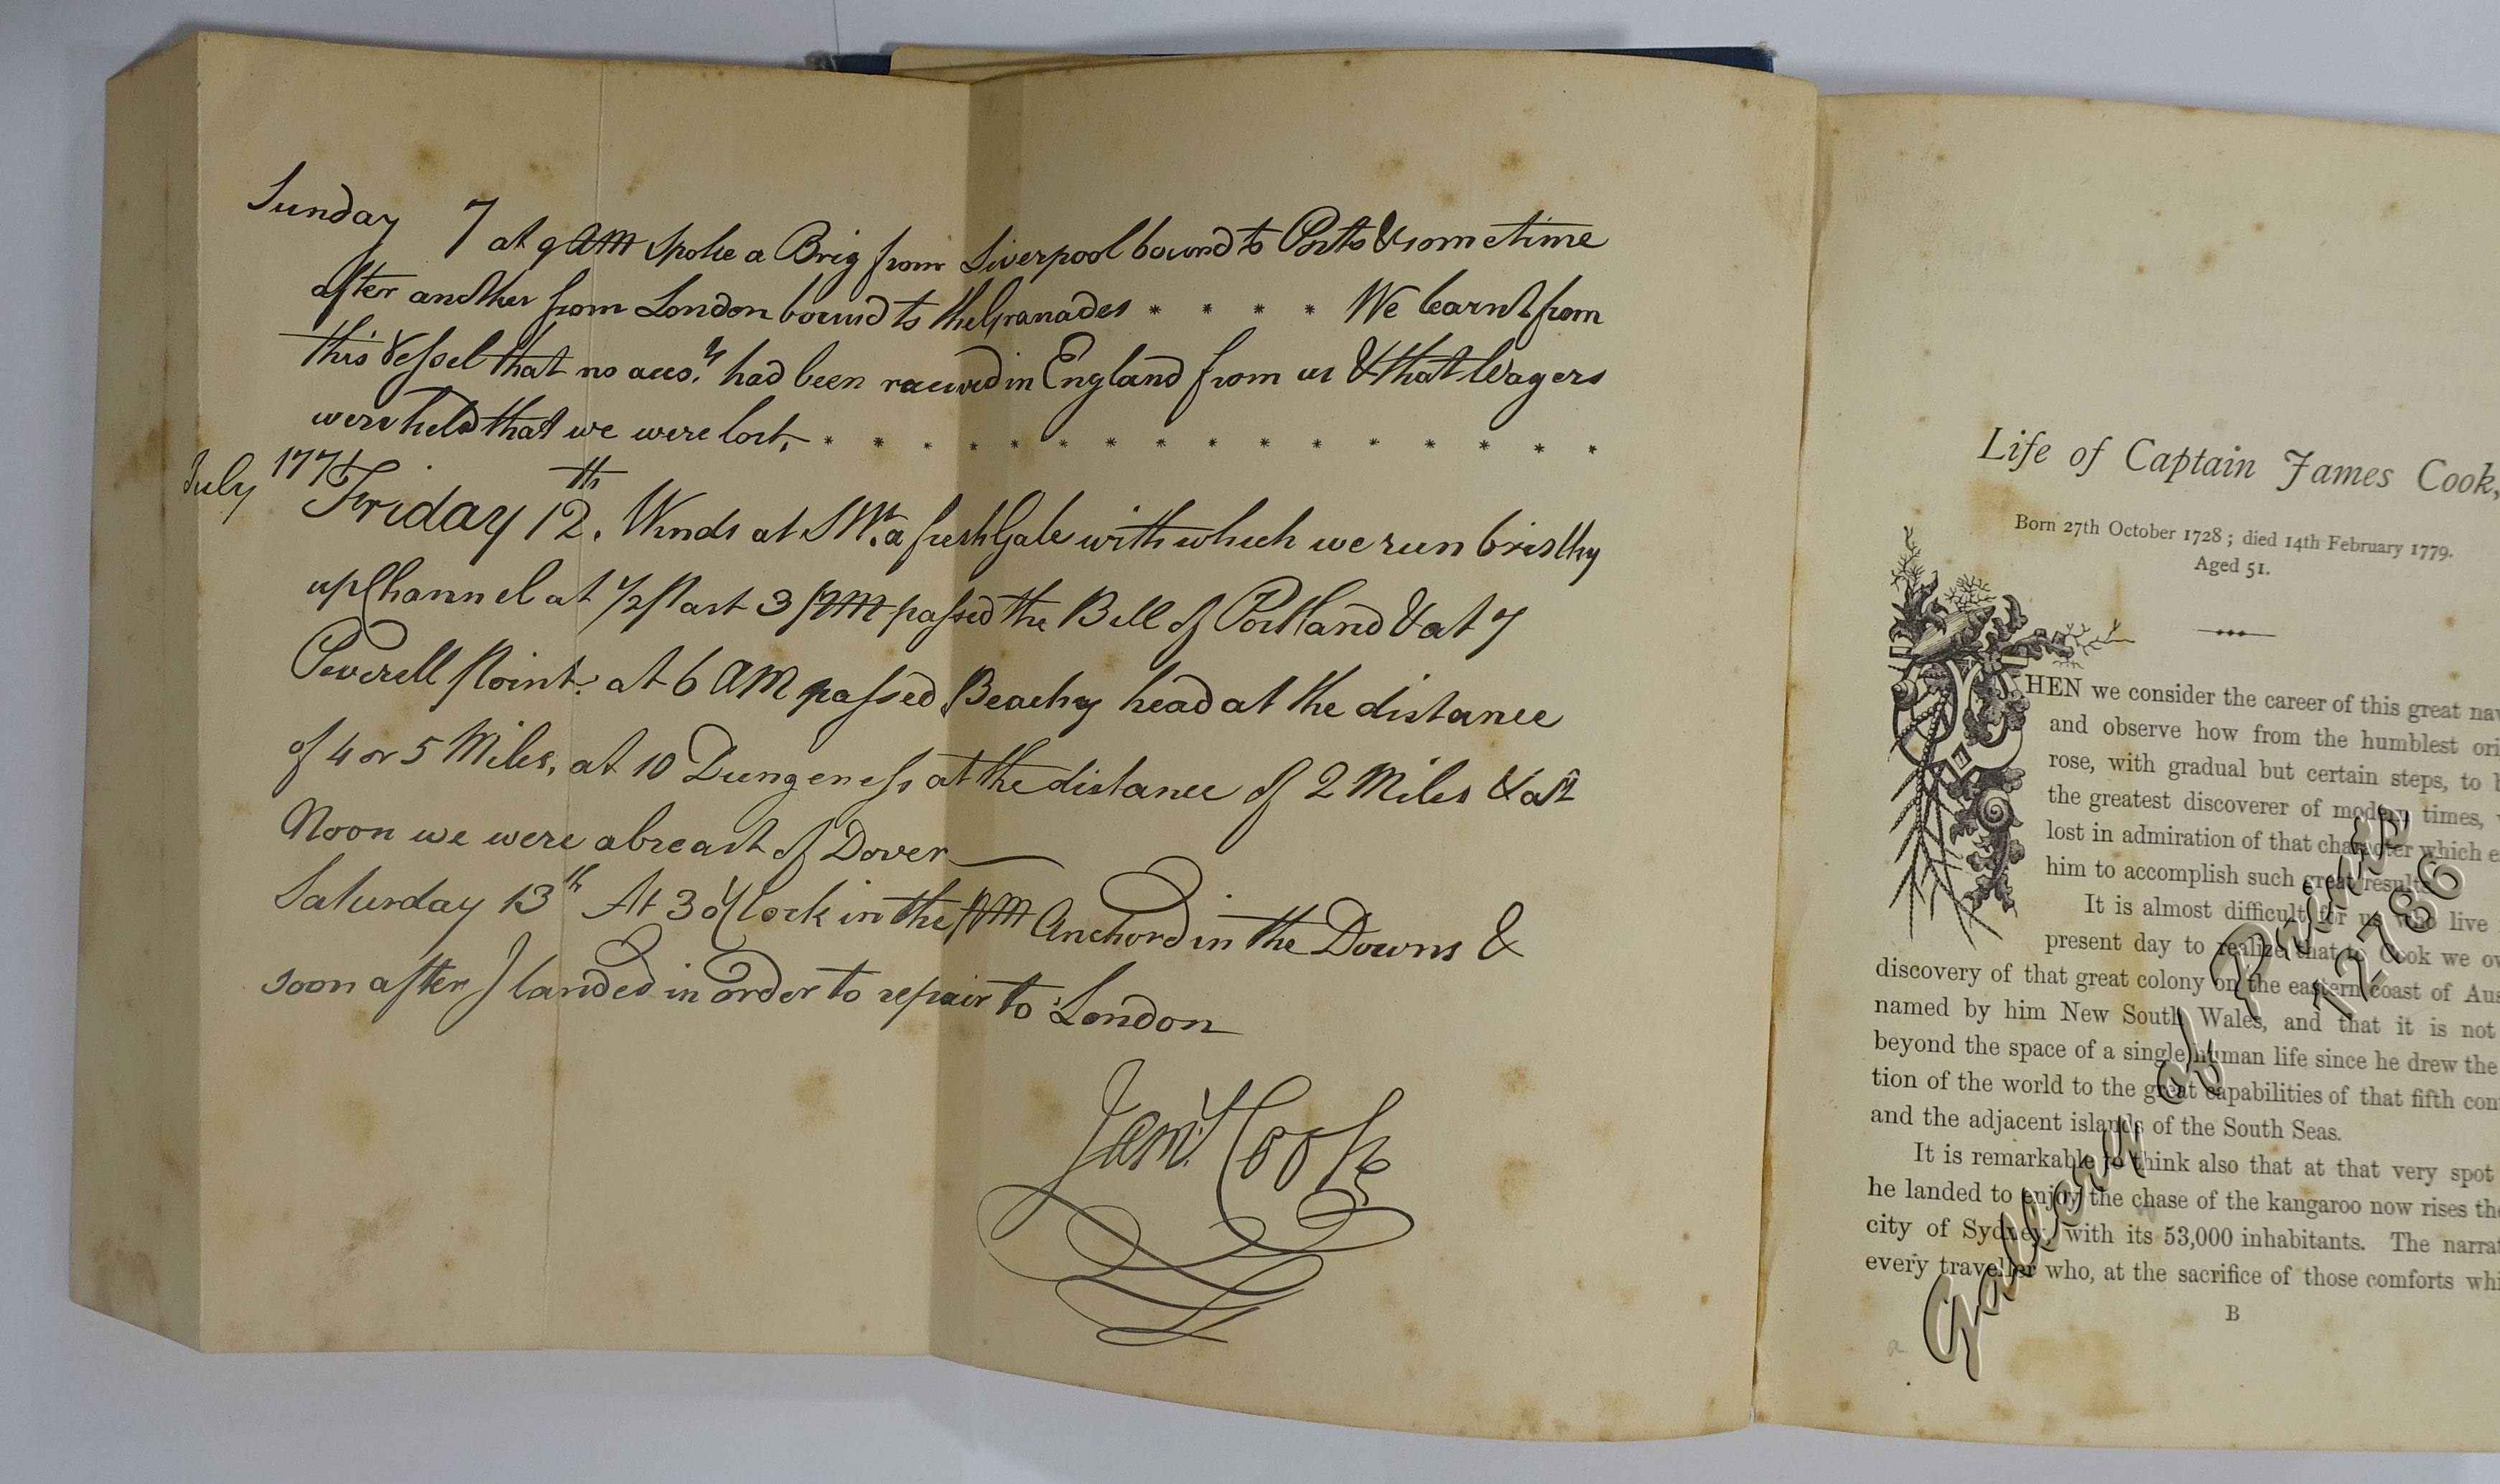 Sunday 7 at 9 AM spoke a Brig from Liverpool bound to Porto & some time
after another from London bound to the Granades * * * * We learnt from
this Vessel that no acco.ts had been received in England from us & that Wagers
were held that we were lost, * * * * * * * * * * * * * * * * *
July 1771 Friday 12.th Winds at SW.t a fresh Gale with which we run briskly
up Channel at 1/2 past 3 PM passed the Bill of Portland & at 7
Peverell Point: at 6 AM passed Beachy head at the distance
of 4 or 5 Miles, at 10 Dungeness at the distance of 2 Miles & at
Noon we were abreast of Dover
Saturday 13th At 3 oClock in the PM Anchord in the Downs &
soon after I landed in order to repair to London
Jam.s Cook
Life of Captain James Cook,
Born 27th October 1728; died 14th February 1779.
Aged 51.
WHEN we consider the career of this great nav
and observe how from the humblest ori
rose, with gradual but certain steps, to b
the greatest discoverer of modern times,
lost in admiration of that character which e
him to accomplish such great results.
It is almost difficult for us who live
present day to realize that to Cook we ow
discovery of that great colony on the eastern coast of Aus
named by him New South Wales, and that it is not
beyond the space of a single human life since he drew the
tion of the world to the great capabilities of that fifth con
and the adjacent islands of the South Seas.
It is remarkable to think also that at that very spot
he landed to enjoy the chase of the kangaroo now rises the
city of Sydney, with its 53,000 inhabitants. The narrat
every traveller who, at the sacrifice of those comforts whi
B
Gallery of Prints
12786